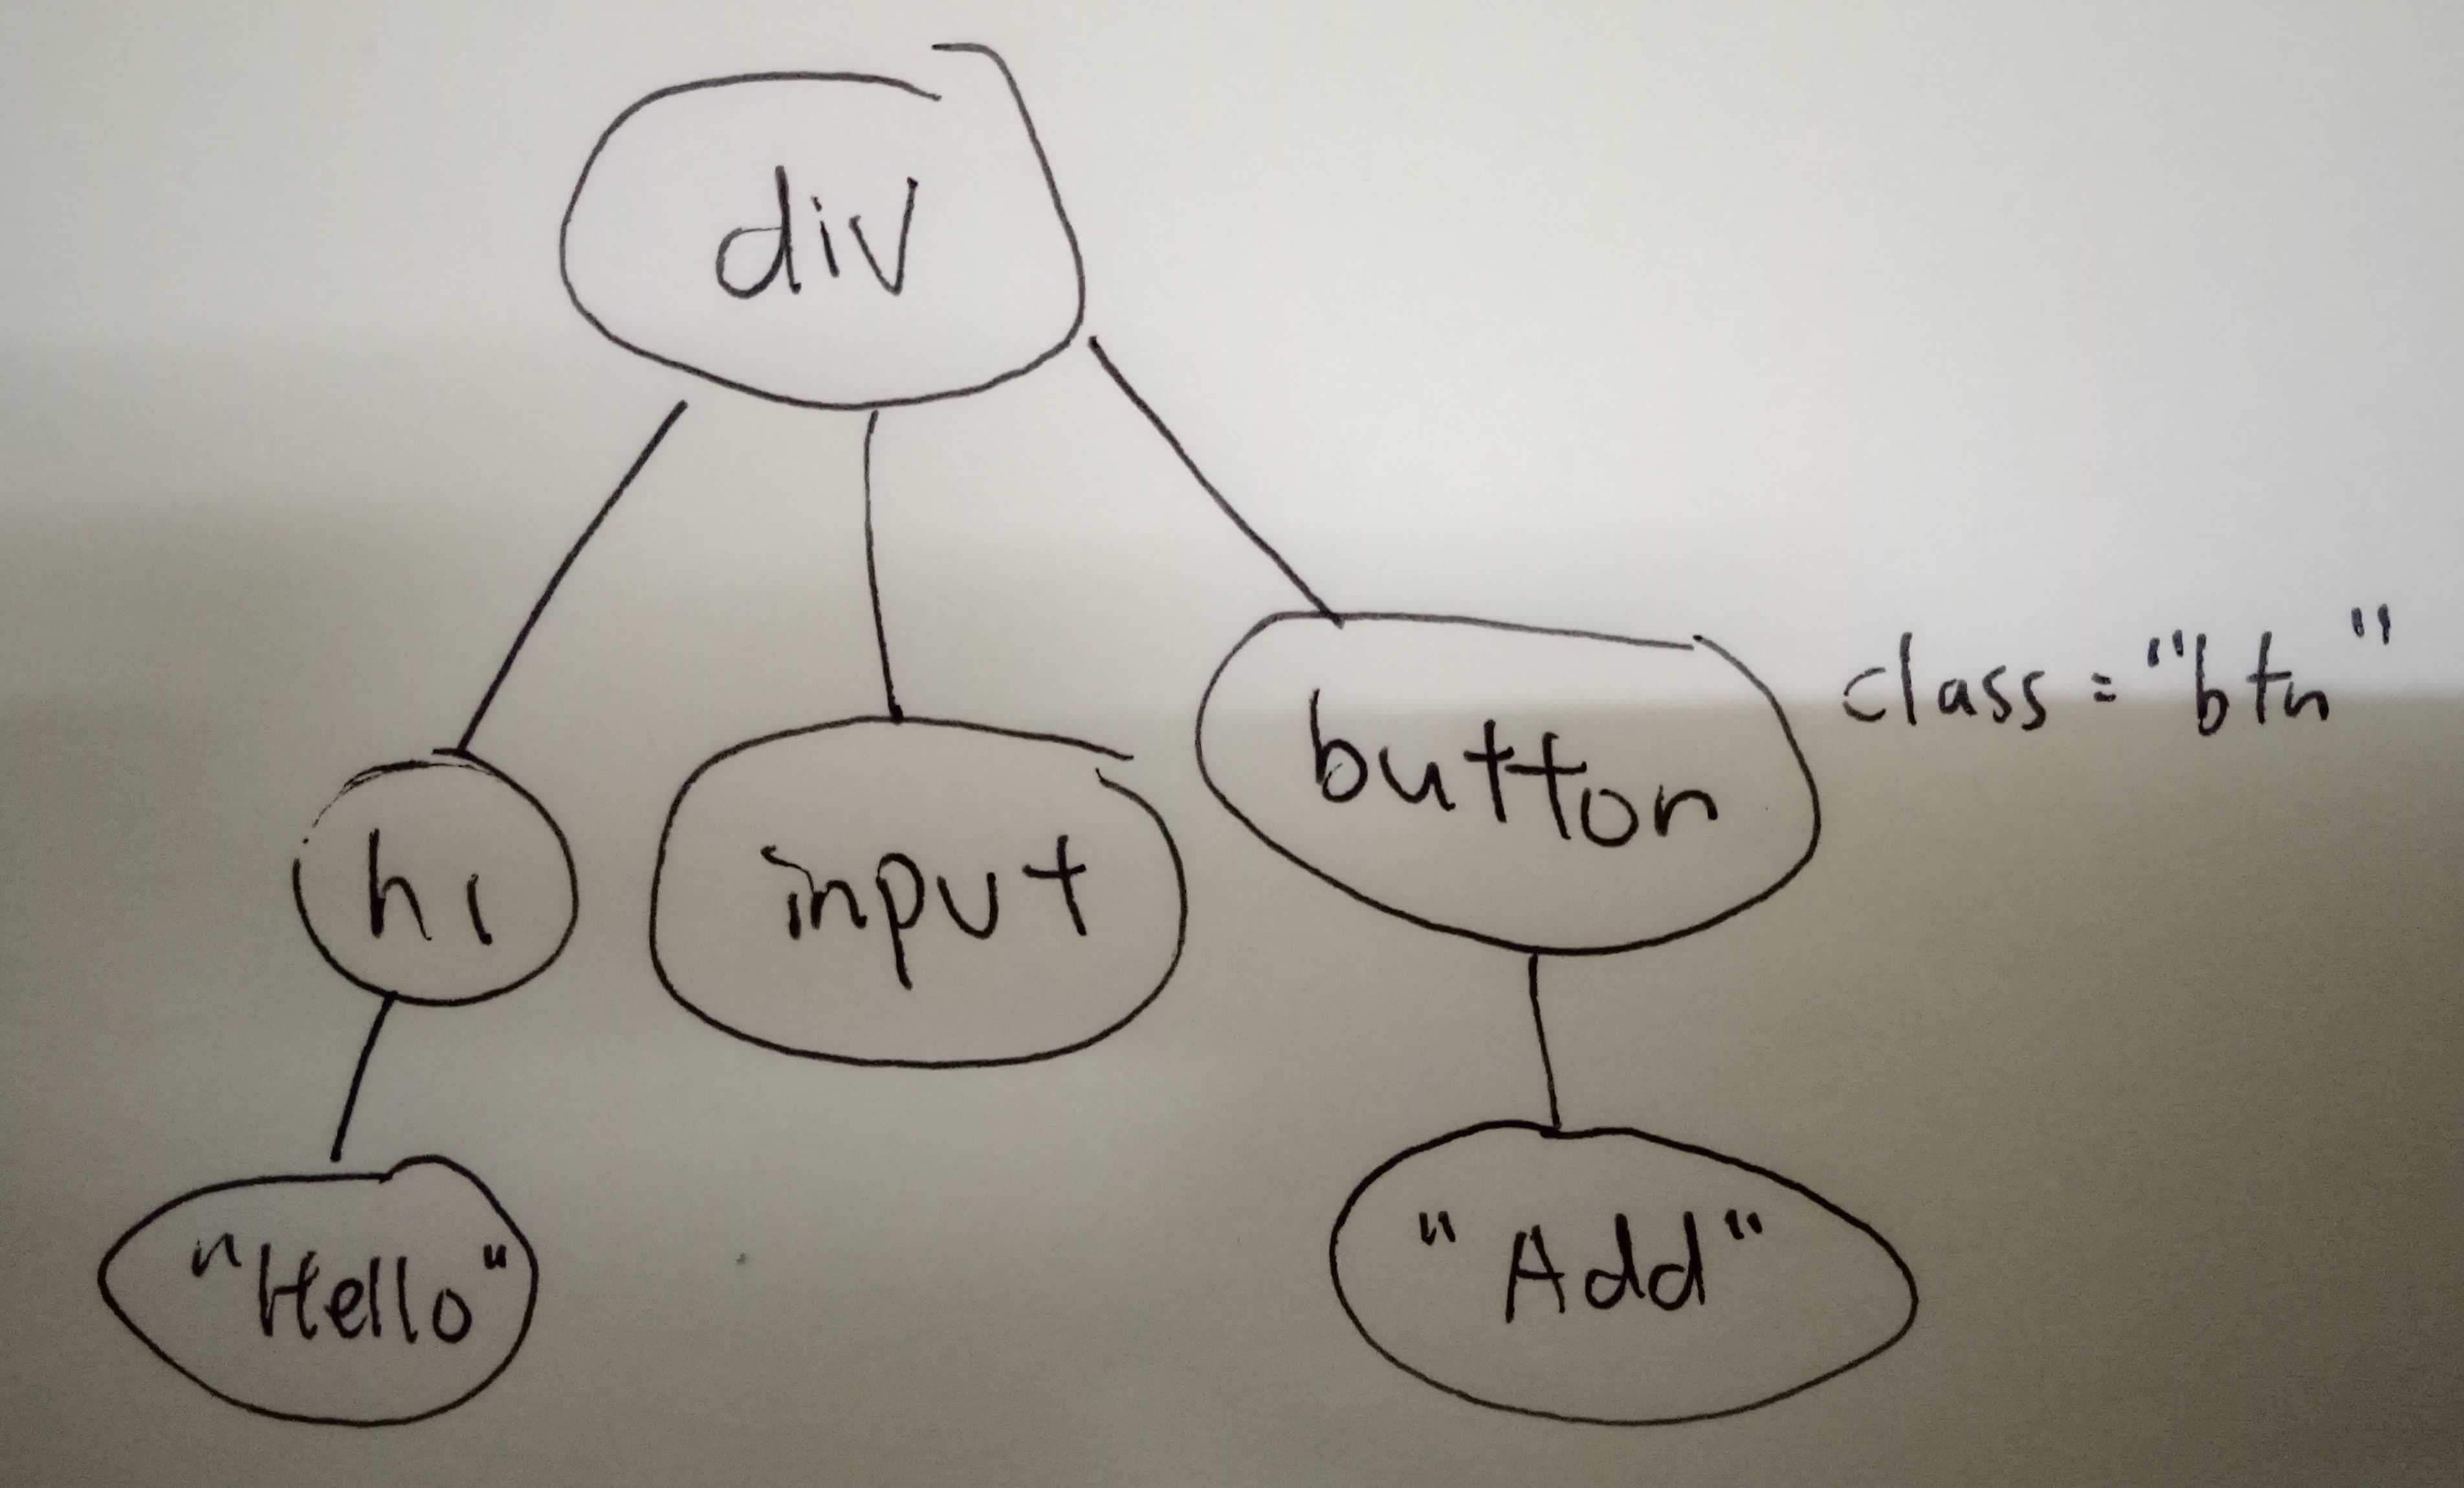 div
h1
input
button
class="btn"
"Hello"
"Add"